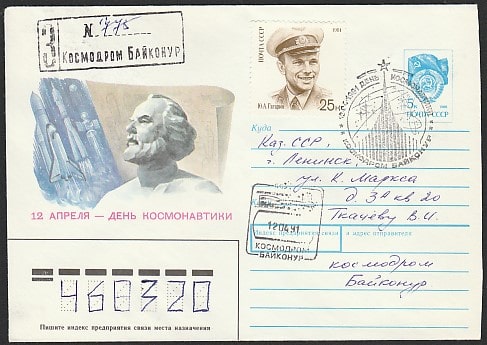 З № 775
Космодром Байконур
ПОЧТА СССР 1991
Ю.А. Гагарин 25к
5к ПОЧТА СССР
12.04.1991 ДЕНЬ КОСМОНАВТИКИ
КОСМОДРОМ БАЙКОНУР
12 АПРЕЛЯ — ДЕНЬ КОСМОНАВТИКИ
Куда
Каз. ССР,
г. Ленинск,
ул. К. Маркса
д. 3А кв 20
Кому
Ткачёву В.И.
120491
КОСМОДРОМ
БАЙКОНУР
Индекс предприятия связи и адрес отправителя
космодром
Байконур
460320
Пишите индекс предприятия связи места назначения